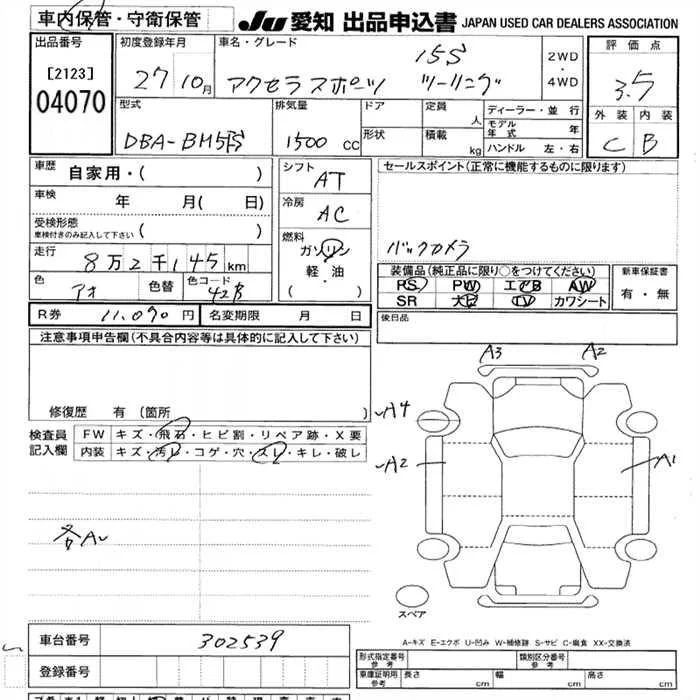 車内保管・守衛保管
JU 愛知 出品申込書 JAPAN USED CAR DEALERS ASSOCIATION
出品番号
[2123]
04070
初度登録年月
27 10月
車名・グレード
15S
アクセラスポーツ ツーリング
2WD
・
4WD
評価点
3.5
外装 内装
C B
型式
DBA-BM5FS
排気量
1500 cc
ドア
形状
定員
人
積載
kg
ディーラー・並行
モデル年式 年
ハンドル 左・右
車歴 自家用・( )
車検 年 月( 日)
受検形態
車検付きのみ記入して下さい ( )
走行 8万2千145km
色 アオ 色替 色コード 42B
シフト
AT
冷房
AC
燃料
ガソリン
軽・油
( )
セールスポイント(正常に機能するものに限ります)
バックカメラ
装備品(純正品に限り○をつけてください)
PS PW エアB AW
SR 犬ヒ TV カワシート
新車保証書
有・無
R券 11,070円 名変期限 月 日
後日品
注意事項申告欄(不具合内容等は具体的に記入して下さい)
修復歴 有(箇所 )
検査員記入欄
FW キズ・飛石・ヒビ割・リペア跡・X要
内装 キズ・汚レ・コゲ・穴・スレ・キレ・破レ
各A
A3 A2
A4
A2 A1
スペア
車台番号 302539
登録番号
A-キズ E-エクボ U-凹み W-補修跡 S-サビ C-腐食 XX-交換済
形式指定番号 参考 類別区分番号 参考
車庫証明用 参考 長さ cm 幅 cm 高さ cm